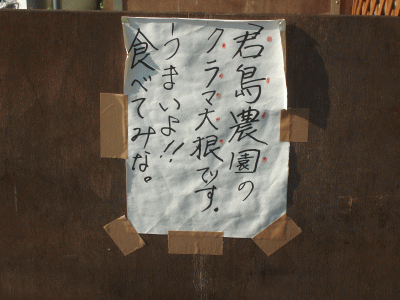 君島農園の
クラマ大根です。
うまいよ!!
食べてみな。